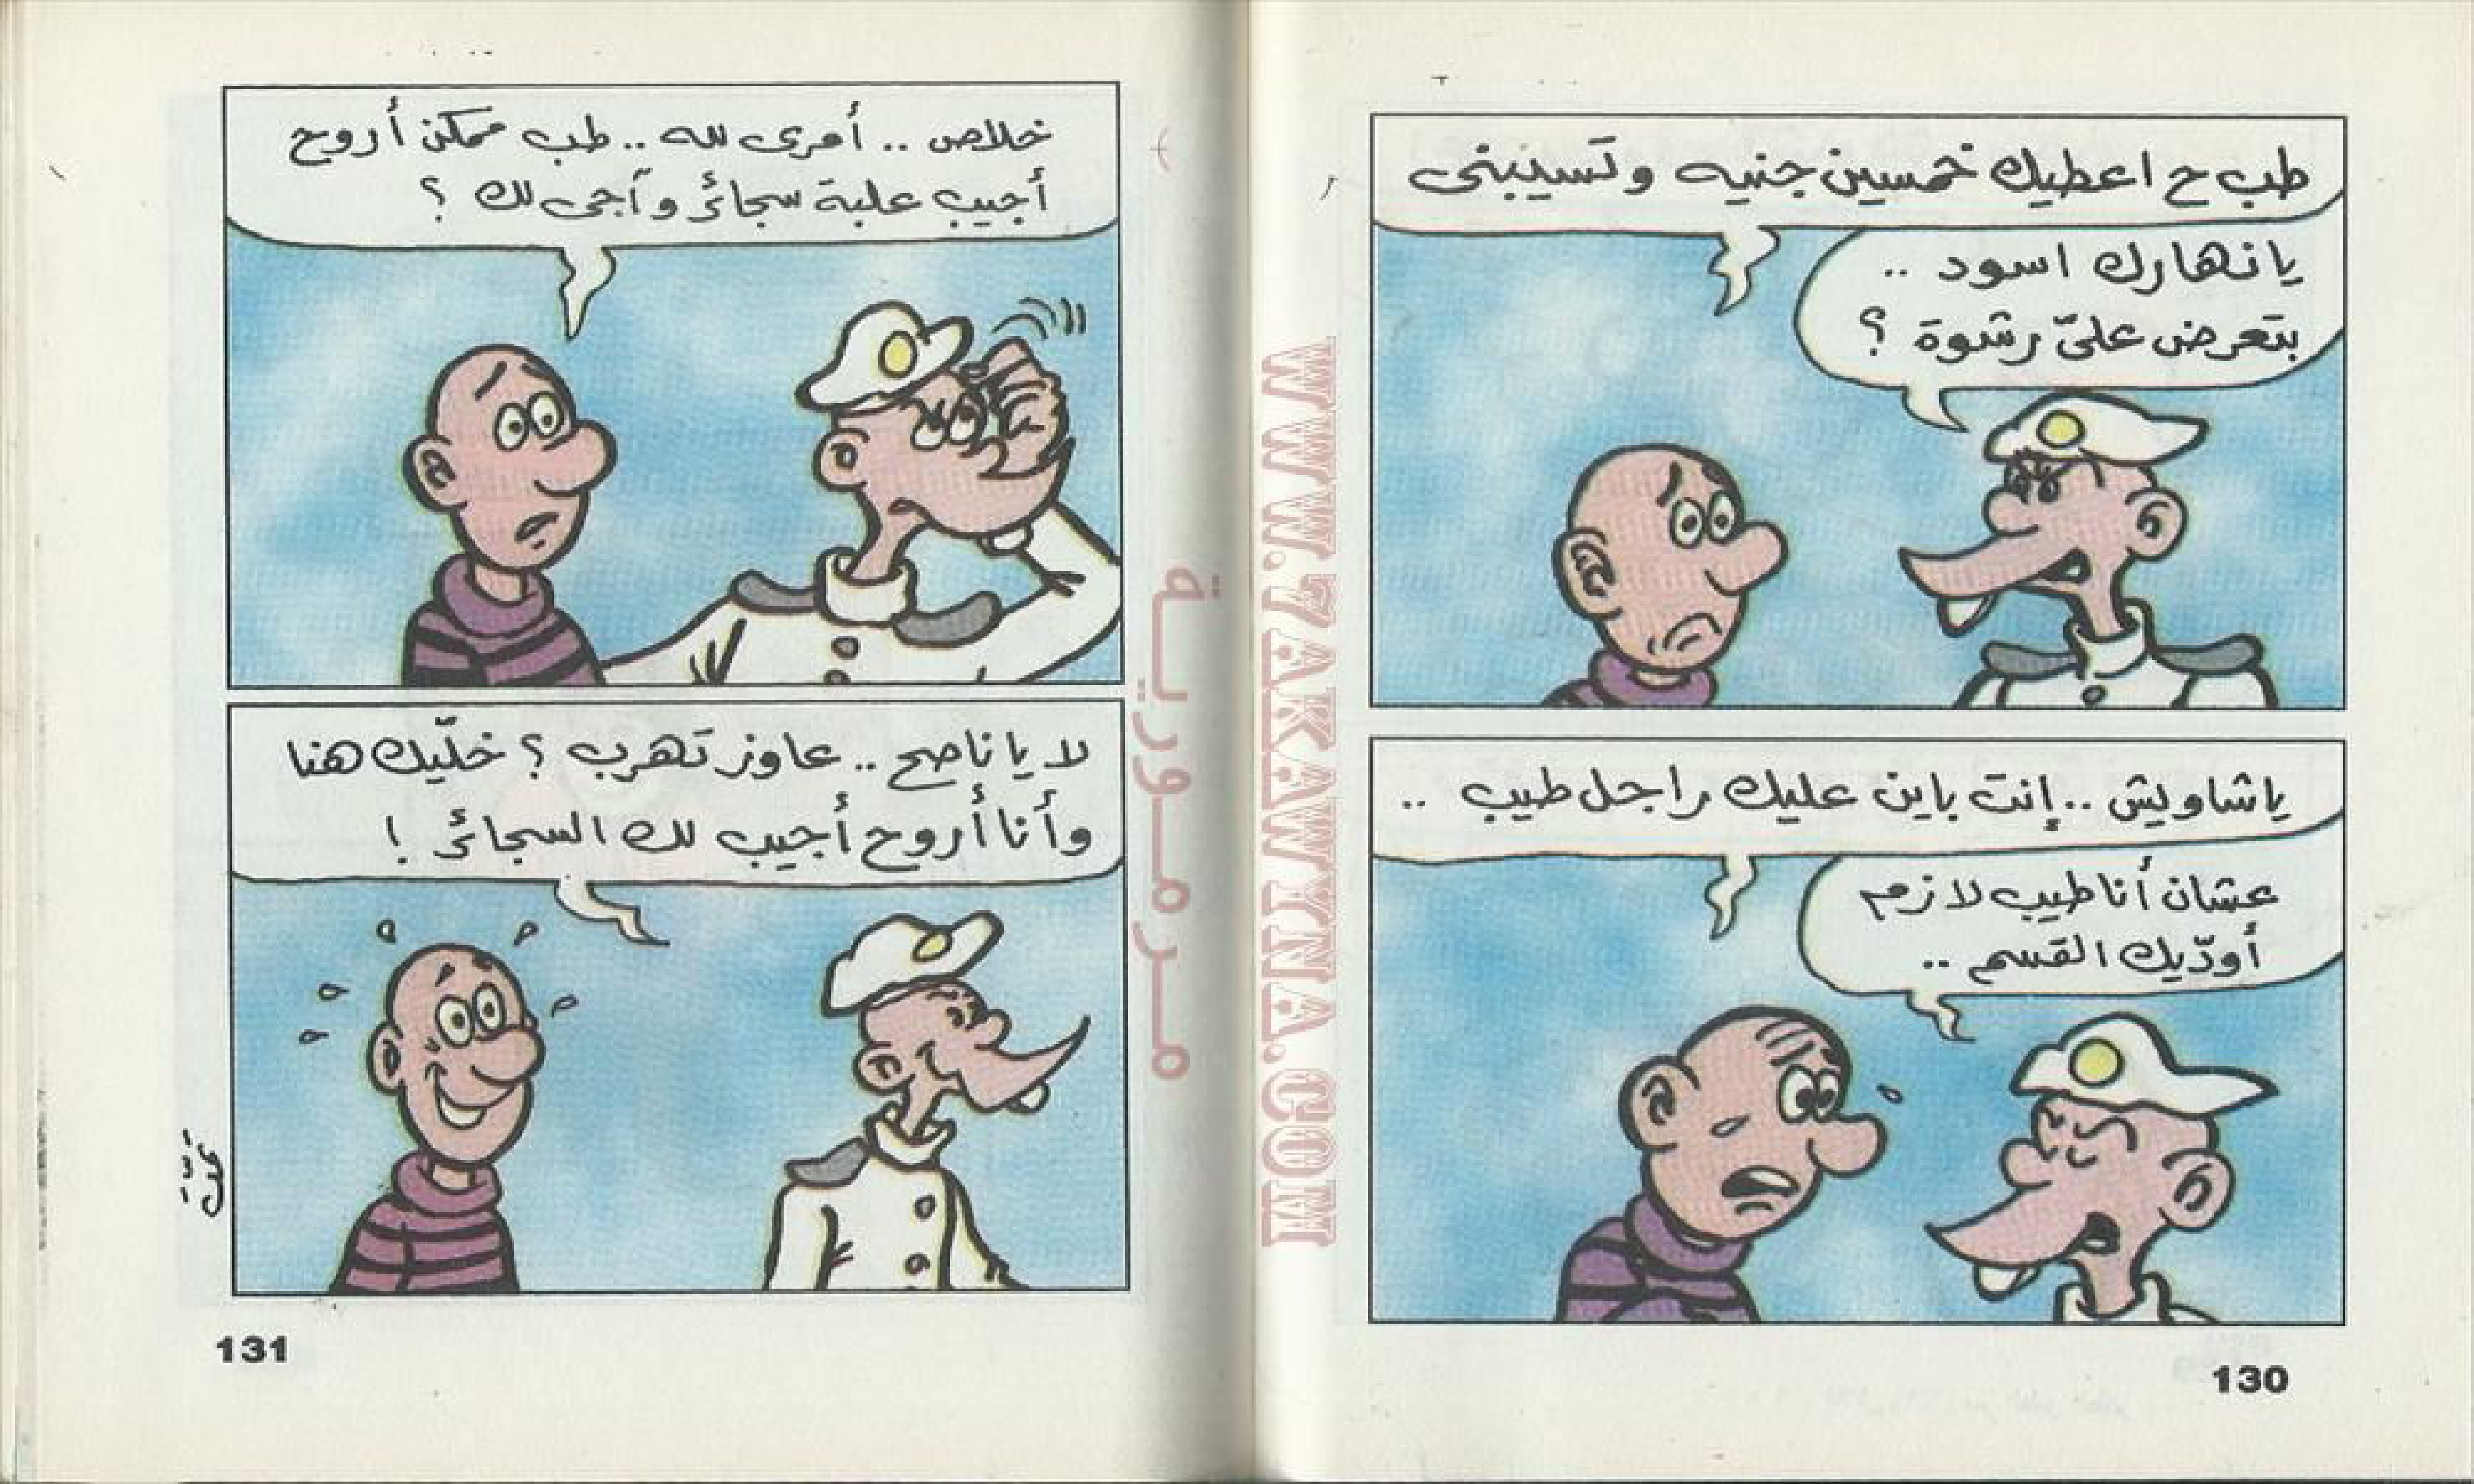 طب ح اعطيك خمسين جنيه وتسيبنى
يانهارك اسود ..
بتعرض علىّ رشوة ؟
ياشاويش .. إنت باين عليك راجل طيب ..
عشان أنا طيب لازم
أودّيك القسم ..
130
WWW.7AKAWYNA.COM
مرمورية
خلاص .. أمرى لله .. طب ممكن أروح
أجيب علبة سجائر وآجى لك ؟
لا يا ناصح .. عاوز تهرب ؟ خلّيك هنا
وأنا أروح أجيب لك السجائر !
131